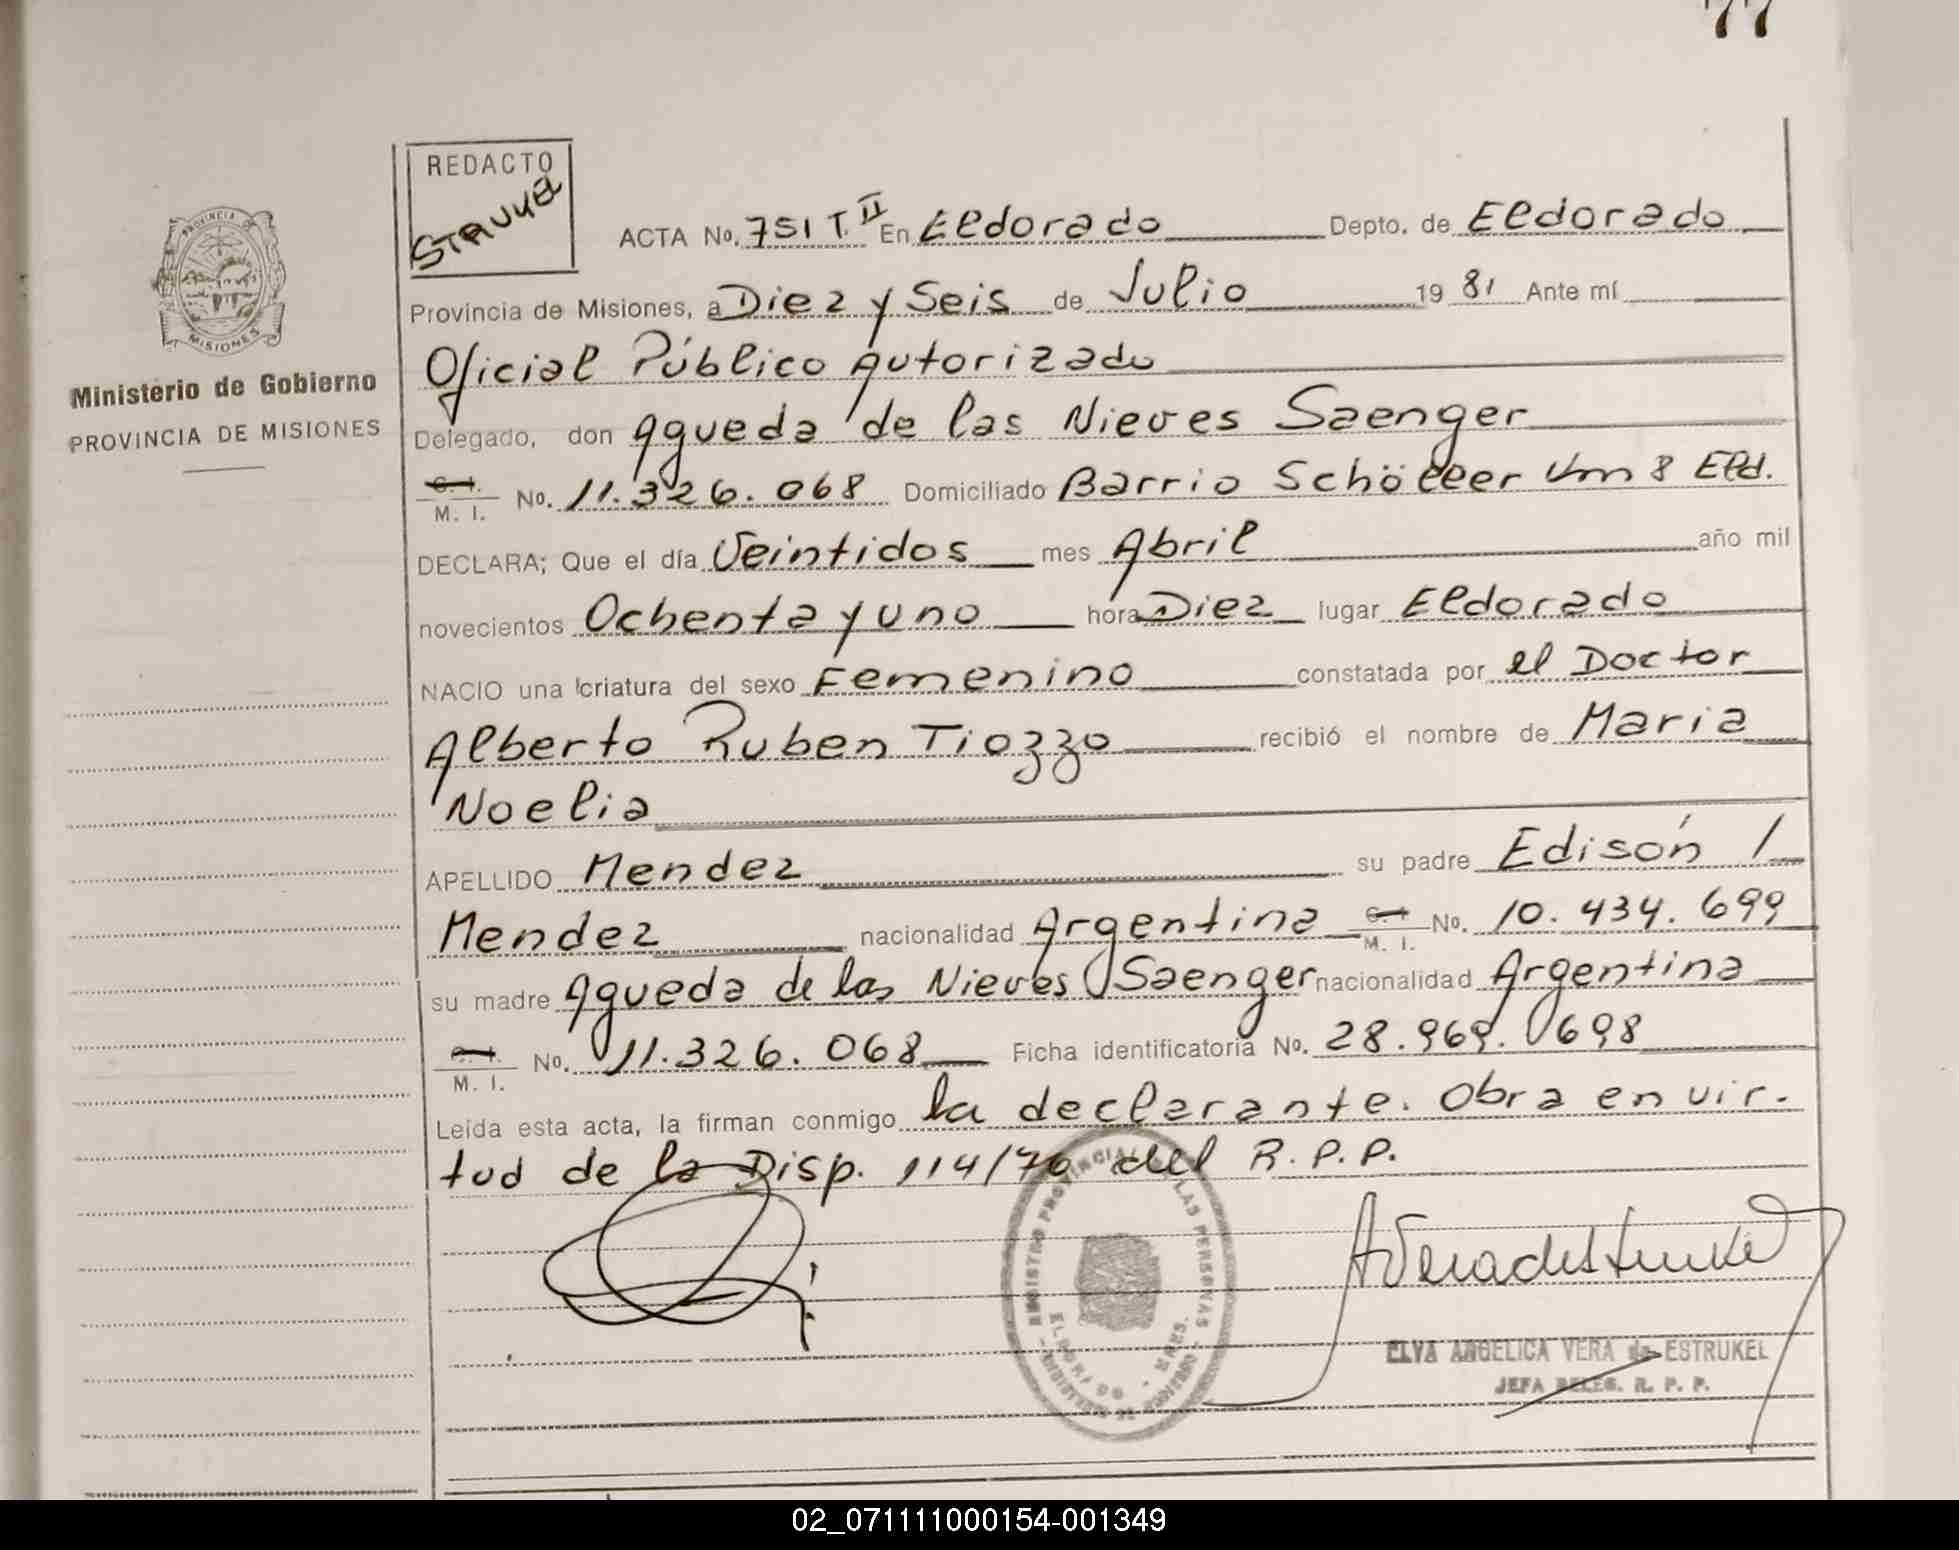 77
REDACTO
STRUKEL
ACTA No. 751 T. II En Eldorado Depto. de Eldorado
Provincia de Misiones, a Diez y Seis de Julio 1981 Ante mí
Oficial Público Autorizado
Delegado, don Agueda de las Nieves Saenger
C. I. M. I. No. 11.326.068 Domiciliado Barrio Schöller Km 8 Eld.
DECLARA; Que el día Veintidos mes Abril año mil
novecientos Ochenta y uno hora Diez lugar Eldorado
NACIO una criatura del sexo Femenino constatada por el Doctor
Alberto Ruben Tiozzo recibió el nombre de Maria
Noelia
APELLIDO Mendez su padre Edisón /
Mendez nacionalidad Argentina C. I. M. I. No. 10.434.699
su madre Agueda de las Nieves Saenger nacionalidad Argentina
C. I. M. I. No. 11.326.068 Ficha identificatoria No. 28.969.698
Leída esta acta, la firman conmigo la declarante. Obra en vir.
tud de la Disp. 114/76 del R.P.P.
PROVINCIA DE
MISIONES
Ministerio de Gobierno
PROVINCIA DE MISIONES
REGISTRO PROVINCIAL DE LAS PERSONAS
ELDORADO - MNES.
MINISTERIO DE GOBIERNO
AVeradeStrukel
ELVA ANGELICA VERA de ESTRUKEL
JEFA DELEG. R. P. P.
02_071111000154-001349